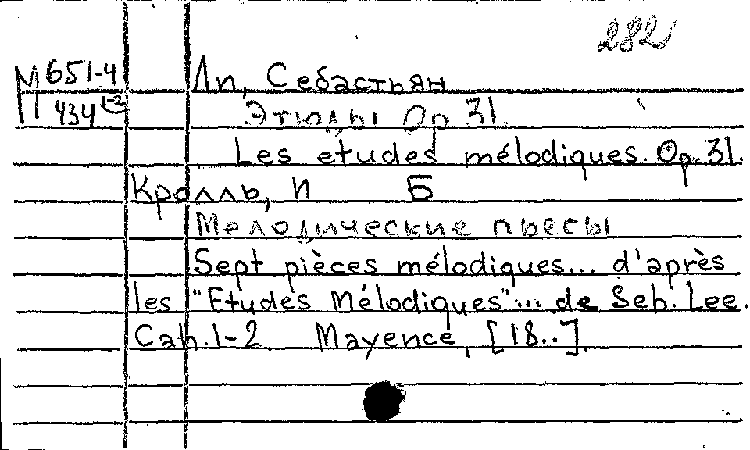 282
М 651-4
434 1-2
Ли, Себастьян
Этюды Op 31.
Les études mélodiques. Op. 31.
Кролль, И Б
Мелодические пьесы
Sept pièces mélodiques... d'après
les "Etudes Mélodiques"... de Seb. Lee.
Cah. 1-2 Mayence, [18..].